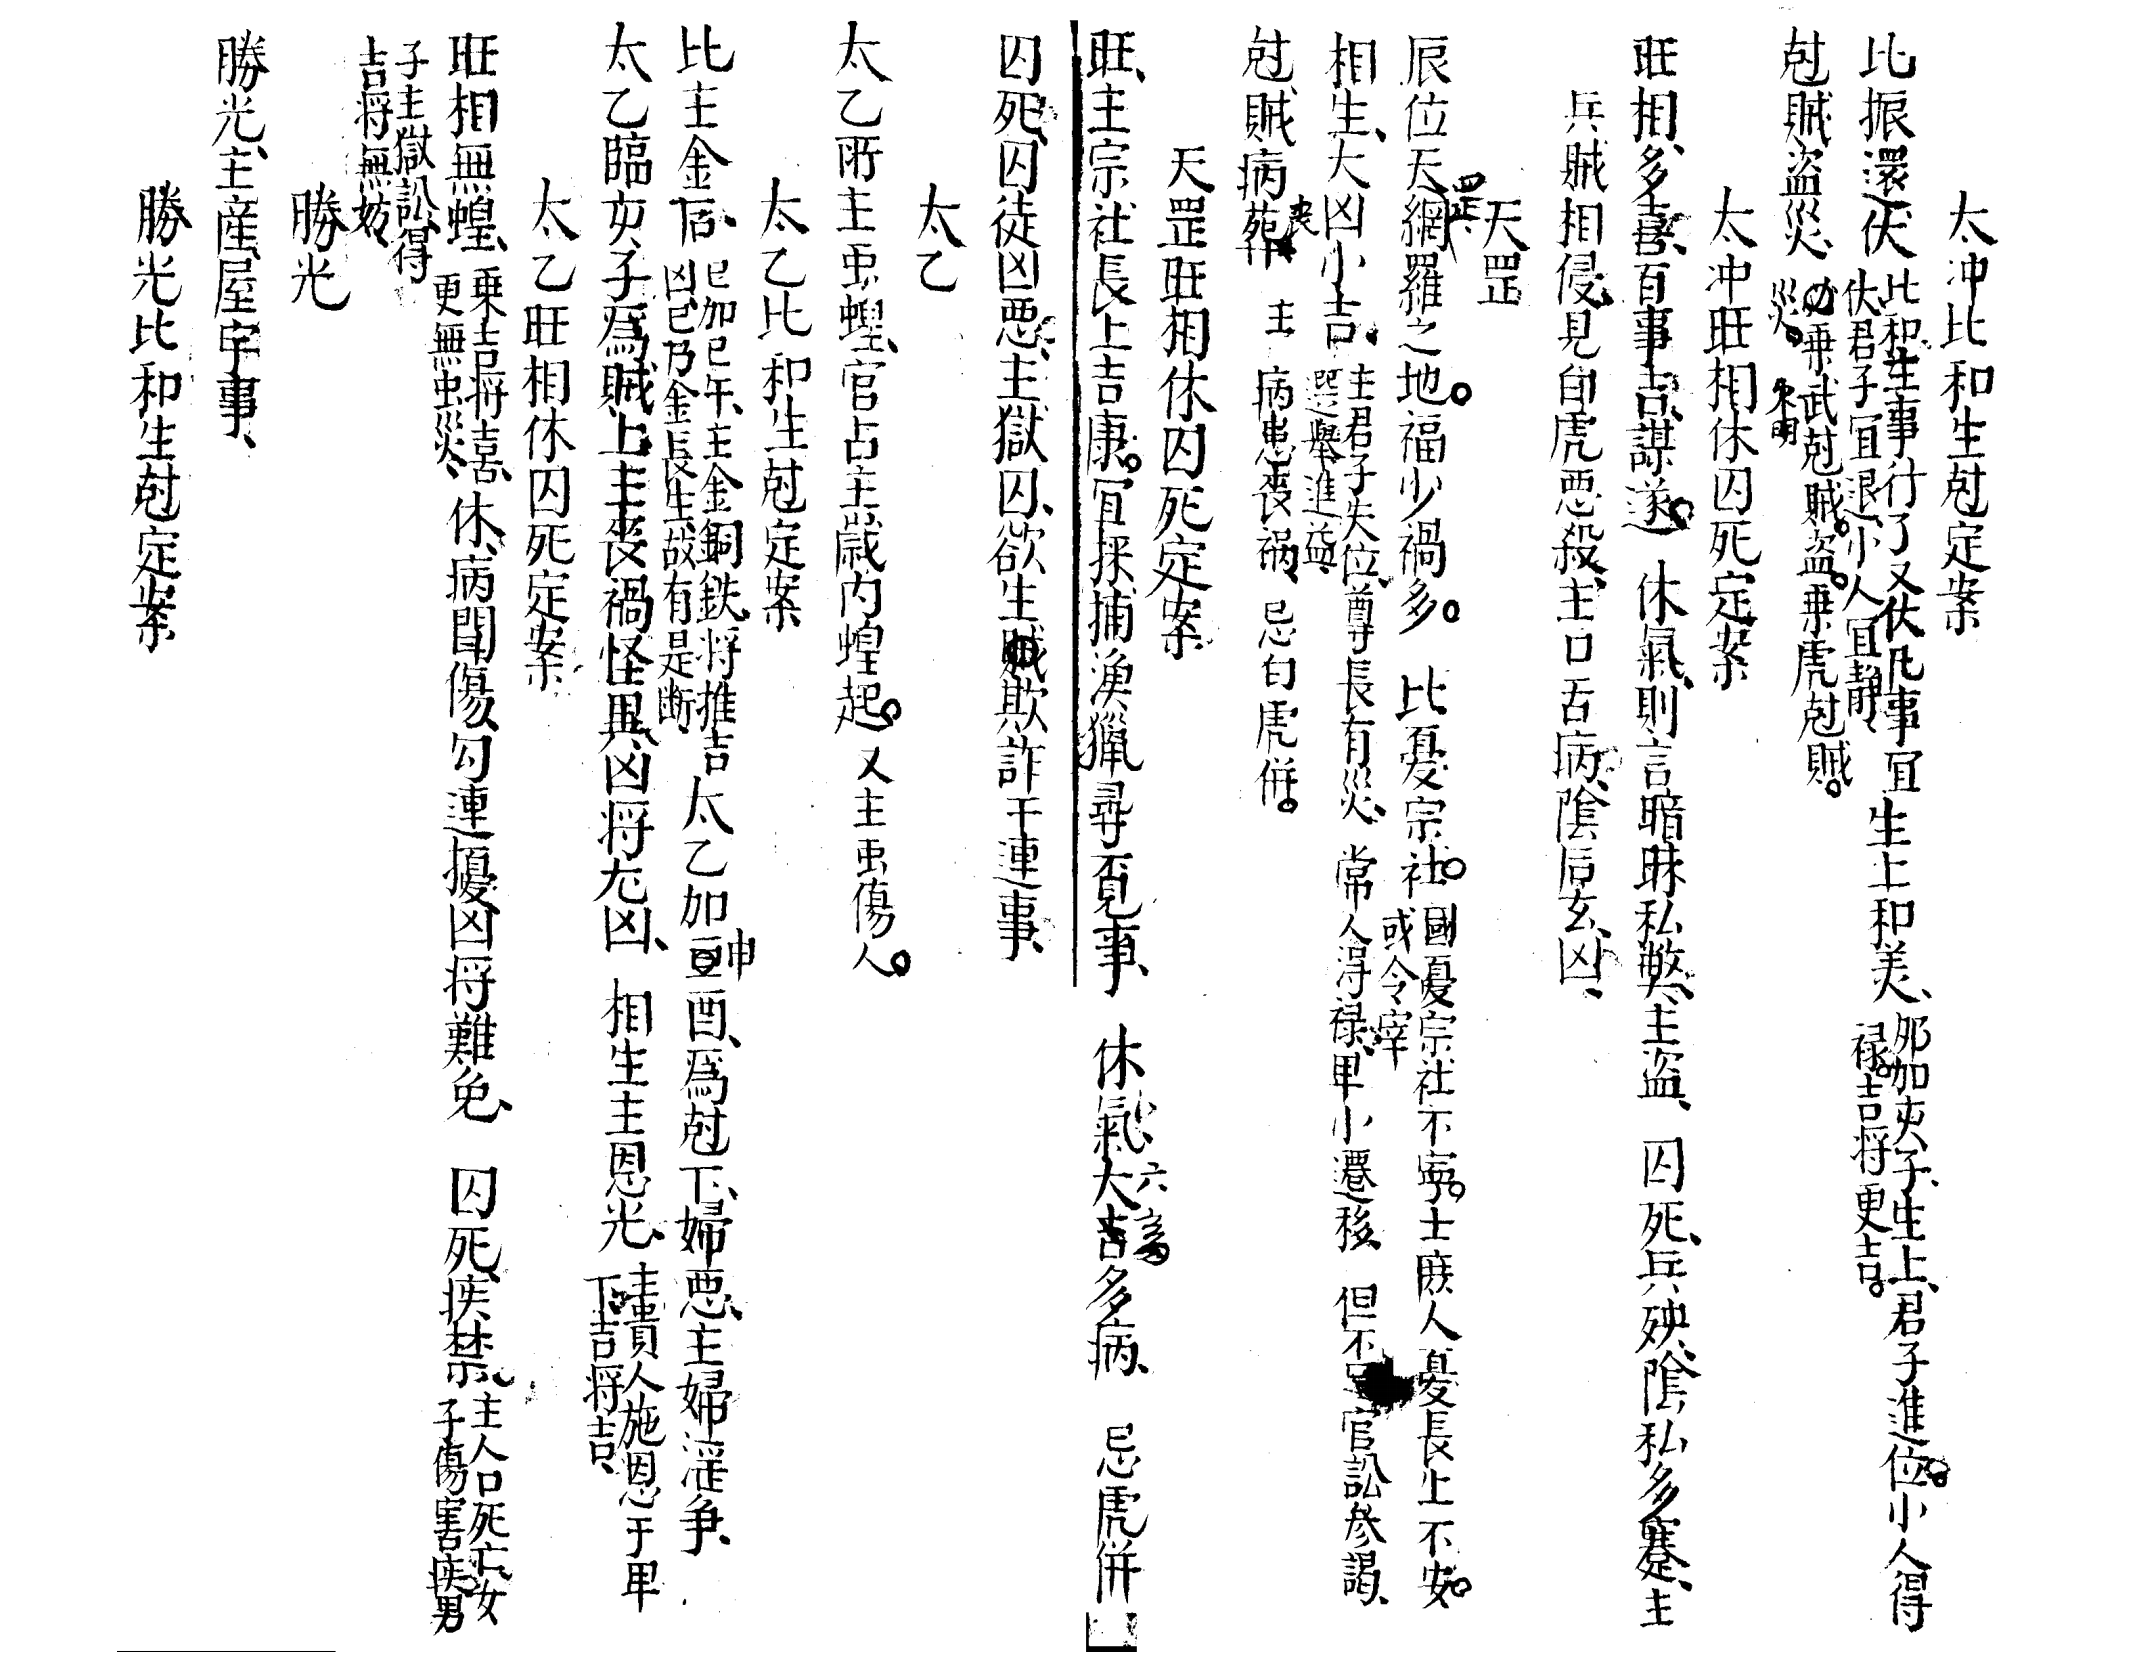 太冲比和生尅定案
比振還伏比和生事行了又伏凡事冝
伏君子冝退小人冝静生上和美邪加亥子生上君子進位小人得
禄吉将更吉
尅賊盗災必乗武尅賊盗乗虎尅賊
災
太冲旺相休囚死定案
旺相多喜百事吉謀遂 休氣則言暗昧私弊主盗 囚死兵殃隂私多蹇主
兵賊相侵見白虎悪殺主口舌病隂后玄凶
天罡
辰位天網羅之地福少禍多 比憂宗社國憂宗社不寧士庻人憂長上不安
或令宰
相生大凶小吉主君子失位尊長有災常人得禄卑小遷移 但不 官訟参謁
選舉進益
尅賊病喪葬 主病患喪禍忌白虎併
天罡旺相休囚死定案
旺主宗社長上吉康冝採捕漁獵尋覓事 休氣六畜多病 忌虎併
囚死囚徒凶悪主獄囚欲生賊欺詐干連事
太乙
太乙所主虫蝗官占主歳内蝗起又主虫傷人
太乙比和生尅定案
比主金石巳加巳午主金銅鉄将推吉
凶巳乃金長生故有是断太乙加申酉為尅下婦悪主婦淫争
太乙臨亥子為賊上主喪禍怪異凶将尤凶 相生主恩光主貴人施恩于卑
下吉将吉
太乙旺相休囚死定案
旺相無蝗乗吉将喜
更無虫災休病聞傷勾連擾凶将難免 囚死疾禁主人口死亡女
子傷害疾男
子主獄訟得
吉将無妨
勝光
勝光主産屋宇事
勝光比和生尅定案